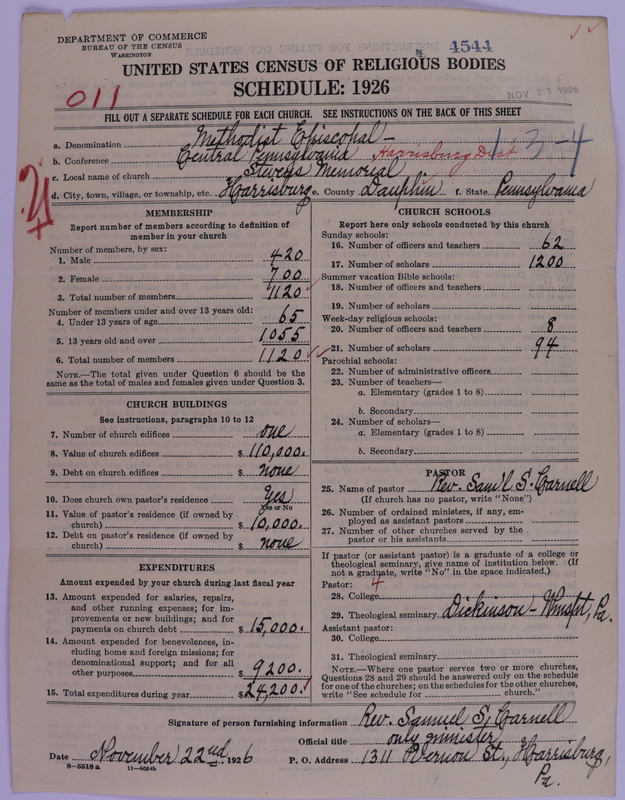 DEPARTMENT OF COMMERCE
BUREAU OF THE CENSUS
WASHINGTON
4544
UNITED STATES CENSUS OF RELIGIOUS BODIES
SCHEDULE: 1926
NOV 23 1926
011
FILL OUT A SEPARATE SCHEDULE FOR EACH CHURCH. SEE INSTRUCTIONS ON THE BACK OF THIS SHEET
a. Denomination Methodist Episcopal
b. Conference Central Pennsylvania Harrisburg Dist 13-4
c. Local name of church Stevens Memorial
d. City, town, village, or township, etc. Harrisburg e. County Dauphin f. State Pennsylvania
MEMBERSHIP
Report number of members according to definition of
member in your church
Number of members, by sex:
1. Male 420
2. Female 700
3. Total number of members 1120
Number of members under and over 13 years old:
4. Under 13 years of age 65
5. 13 years old and over 1055
6. Total number of members 1120
NOTE.—The total given under Question 6 should be the
same as the total of males and females given under Question 3.
CHURCH BUILDINGS
See instructions, paragraphs 10 to 12
7. Number of church edifices one
8. Value of church edifices $ 110,000.
9. Debt on church edifices $ none
10. Does church own pastor's residence Yes
Yes or No
11. Value of pastor's residence (if owned by
church) $ 10,000.
12. Debt on pastor's residence (if owned by
church) $ none
EXPENDITURES
Amount expended by your church during last fiscal year
13. Amount expended for salaries, repairs,
and other running expenses; for im-
provements or new buildings; and for
payments on church debt $ 15,000.
14. Amount expended for benevolences, in-
cluding home and foreign missions; for
denominational support; and for all
other purposes $ 9200.
15. Total expenditures during year $ 24,200.
CHURCH SCHOOLS
Report here only schools conducted by this church
Sunday schools:
16. Number of officers and teachers 62
17. Number of scholars 1200
Summer vacation Bible schools:
18. Number of officers and teachers
19. Number of scholars
Week-day religious schools:
20. Number of officers and teachers 8
21. Number of scholars 94
Parochial schools:
22. Number of administrative officers
23. Number of teachers—
a. Elementary (grades 1 to 8)
b. Secondary
24. Number of scholars—
a. Elementary (grades 1 to 8)
b. Secondary
PASTOR
25. Name of pastor Rev. Sam'l S. Carnell
(If church has no pastor, write "None")
26. Number of ordained ministers, if any, em-
ployed as assistant pastors
27. Number of other churches served by the
pastor or his assistants
If pastor (or assistant pastor) is a graduate of a college or
theological seminary, give name of institution below. (If
not a graduate, write "No" in the space indicated.)
Pastor: 4
28. College
29. Theological seminary Dickinson- Pa.
Assistant pastor:
30. College
31. Theological seminary
NOTE.—Where one pastor serves two or more churches,
Questions 28 and 29 should be answered only on the schedule
for one of the churches; on the schedules for the other churches,
write "See schedule for church."
Signature of person furnishing information Rev. Samuel S. Carnell
Official title only minister
Date November 22nd, 1926 P. O. Address 1311 Vernon St., Harrisburg,
Pa.
8-5518a 11-9084b